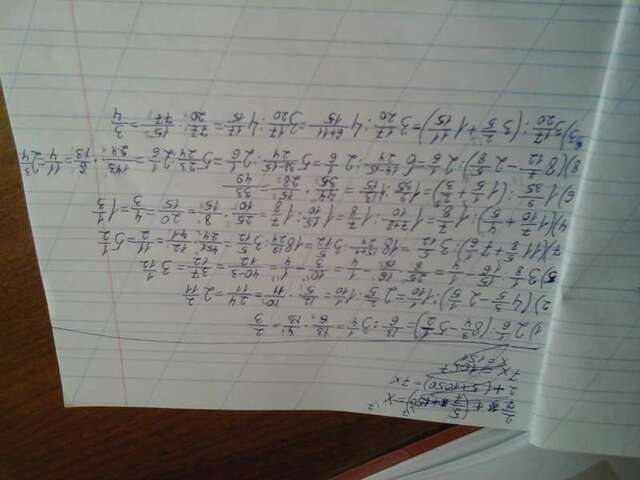 1) 2 1/6 : (8 3/4 - 5 1/2) = 13/6 : 3 1/4 = 13/6 · 4/13 = 2/3
2) (4 3/5 - 2 1/5) : 1 1/10 = 2 2/5 : 1 1/10 = 12/5 · 10/11 = 24/11 = 2 2/11
3 1/8 : 15/16 - 1/4 = 25/8 · 16/15 - 1/4 = 10/3 - 1/4 = 40-3/12 = 37/12 = 3 1/12
7) (11 5/8 + 7 1/6) : 3 5/12 = 18 15+4/24 : 3 5/12 = 18 19/24 : 3 5/12 = 451/24 · 12/41 = 11/2 = 5 1/2
4) (1 7/10 + 4/5) : 1 7/8 = 1 7+8/10 : 1 7/8 = 1 15/10 : 1 7/8 = 25/10 · 8/15 = 20/15 = 4/3 = 1 1/3
6) 1 9/35 : (1 1/5 + 2/3) = 1 9/35 : 1 13/15 = 44/35 · 15/28 = 33/49
8) (8 7/12 - 2 5/8) : 2 1/6 = 6 14-15/24 : 2 1/6 = 5 38-15/24 : 2 1/6 = 5 23/24 : 2 1/6 = 143/24 · 6/13 = 11/4 = 2 3/4
3) 3 17/20 : (3 2/5 + 1 11/15) = 3 17/20 : 4 6+11/15 = 3 17/20 : 4 17/15 = 77/20 · 15/77 = 3/4